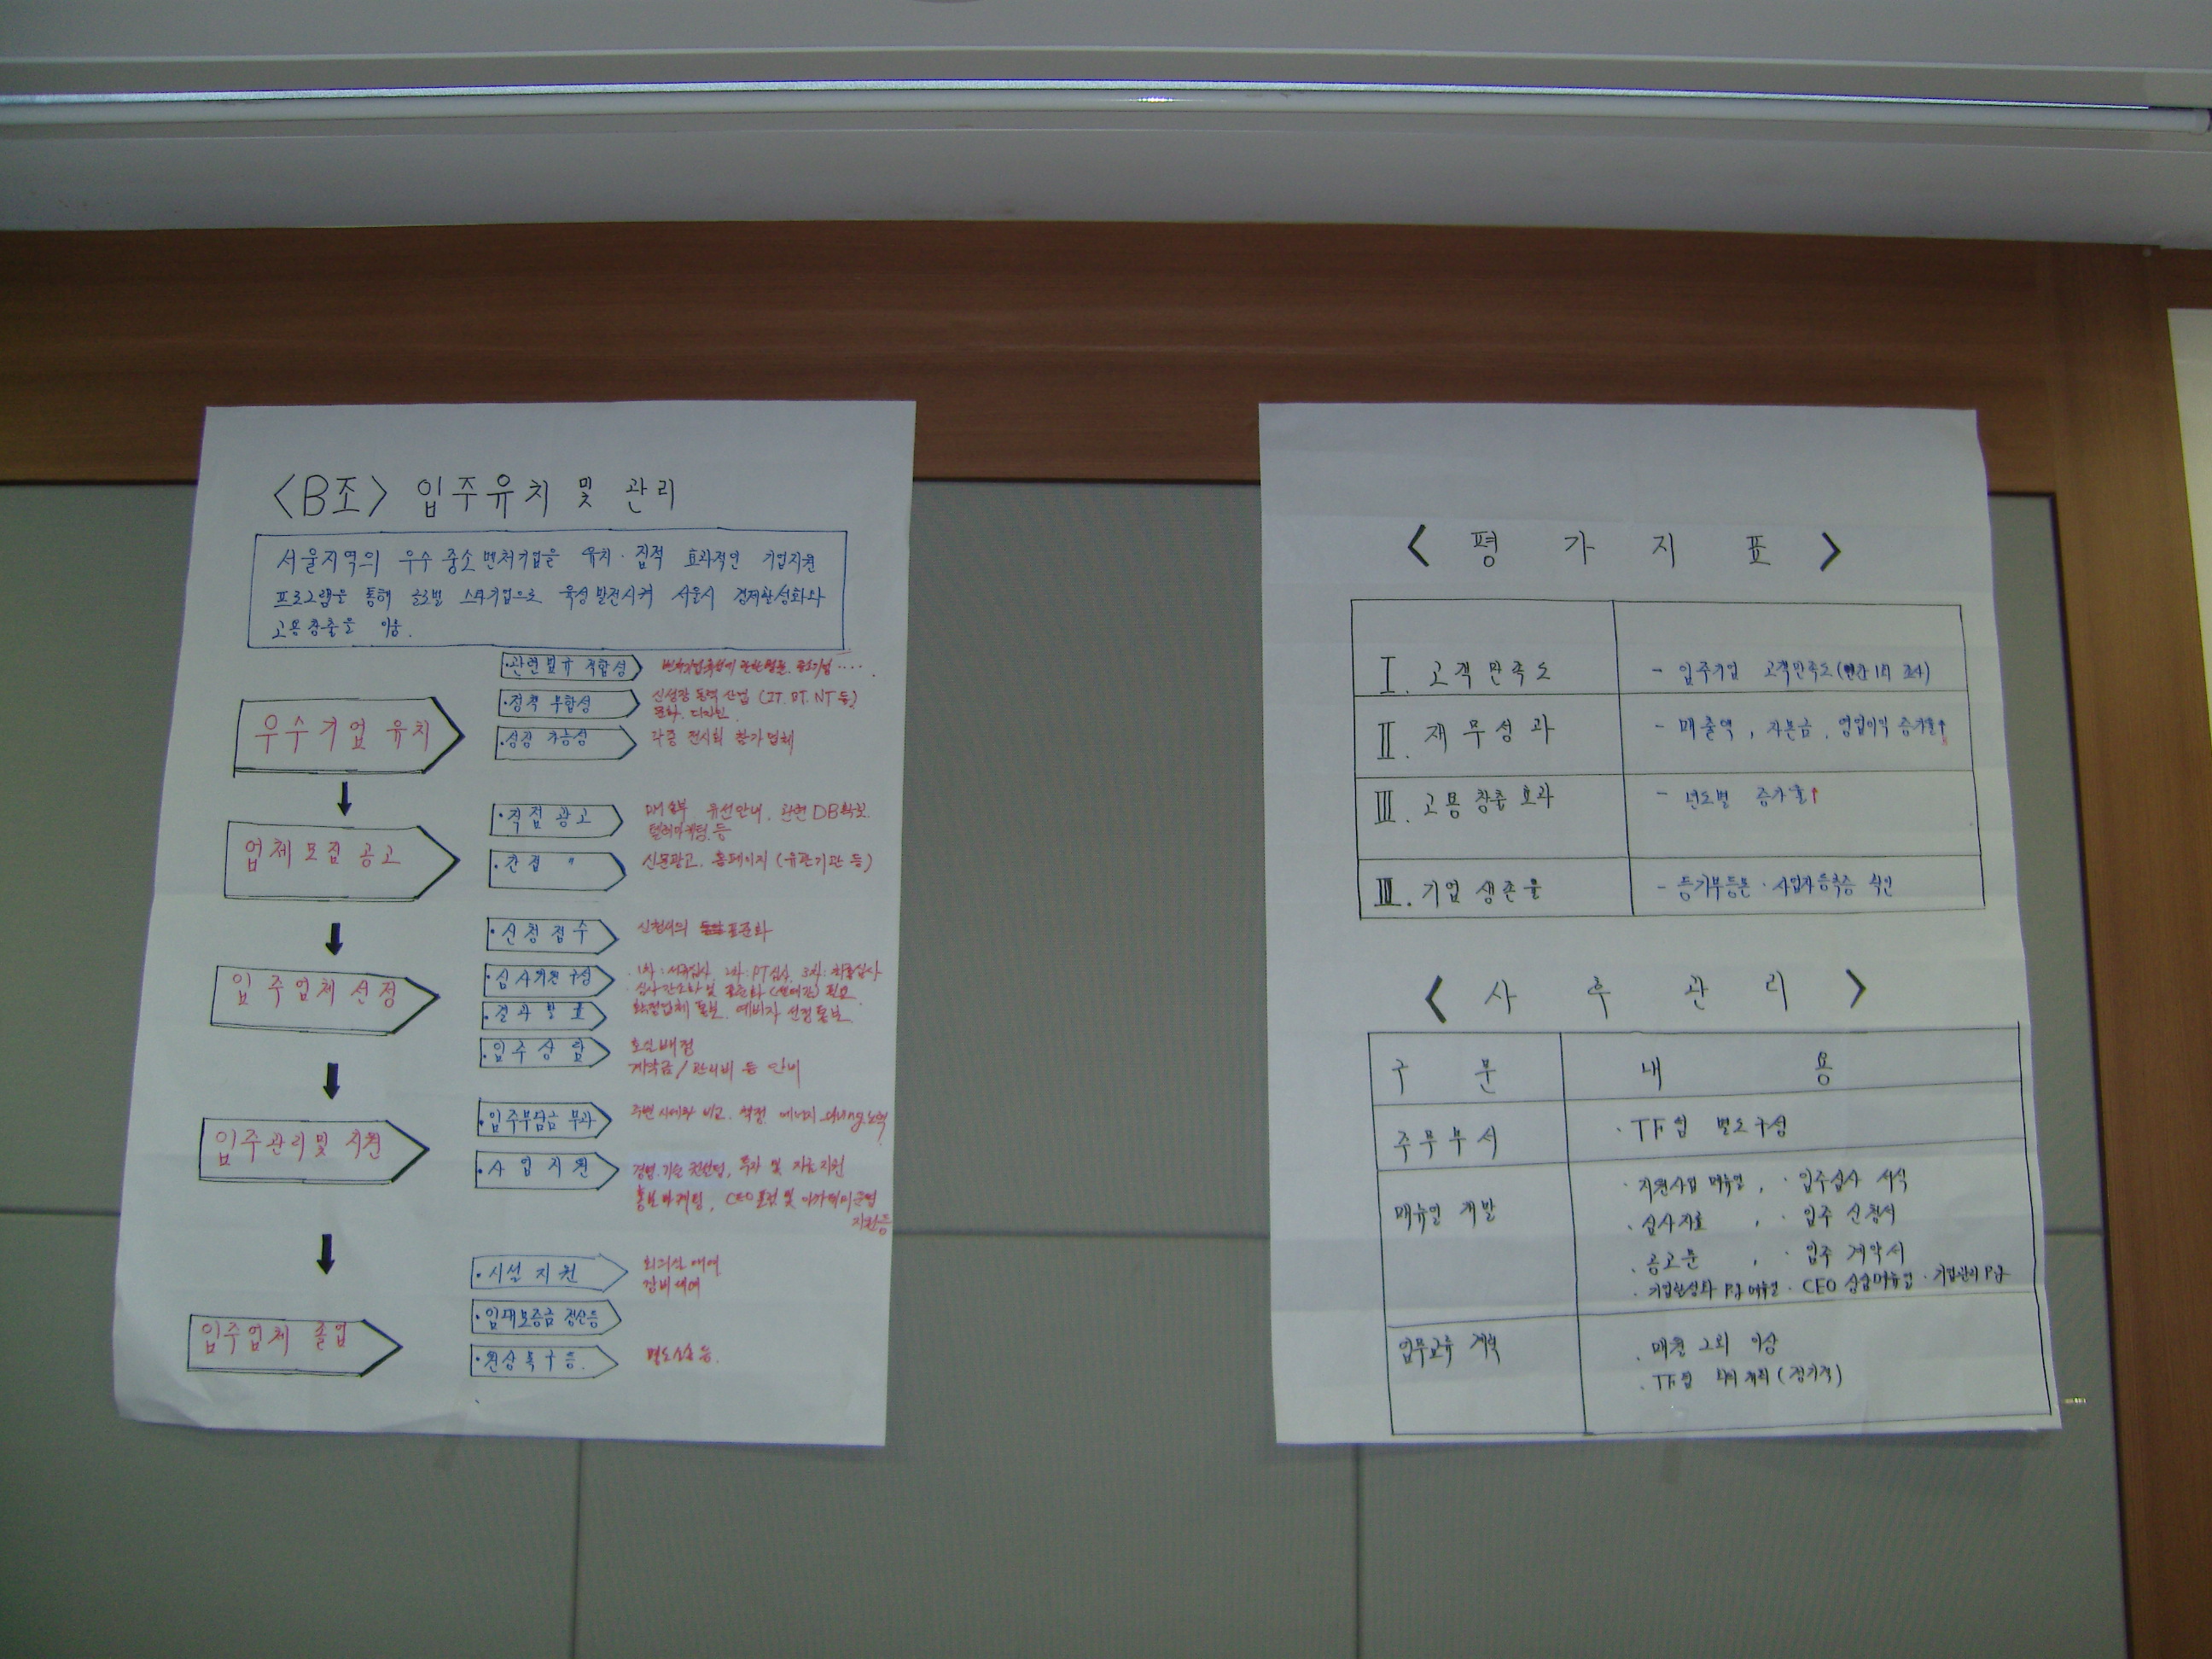 <B조> 입주유치 및 관리
서울지역의 우수 중소 벤처기업을 유치·집적 효과적인 기업지원
프로그램을 통해 글로벌 스타기업으로 육성발전시켜 서울시 경제활성화와
고용창출을 이룸.
우수기업 유치
·관련법규 적합성
·정책 부합성
신성장 동력 산업 (IT. BT. NT 등)
문화. 디자인.
·성장 가능성
각종 전시회 참가업체
업체모집 공고
·직접 광고
DM송부 유선안내. 관련 DB확보.
텔레마케팅 등
·간접 〃
신문광고. 홈페이지 (유관기관 등)
입주업체 선정
·신청접수
신청서의 표준화
·심사위원 구성
·1차:서류심사, 2차:PT심사, 3차:최종심사
·심사 간소화 및 표준화 필요
·결과발표
확정업체 통보. 예비자 선정통보.
·입주상담
호실배정
계약금/관리비 등 안내
입주관리및 지원
·입주부담금 부과
주변 시세와 비교. 책정. 에너지 saving 노력
·사업지원
경영. 기술 컨설팅, 투자 및 자금지원
홍보마케팅, CEO포럼 및 아카데미운영
지원등
입주업체 졸업
·시설 지원
회의실 대여
장비대여
·임대보증금 정산등
·원상복구등.
별도소송 등.
< 평 가 지 표 >
I. 고객만족도
- 입주기업 고객만족도(연간 1회 조사)
II. 재무성과
- 매출액, 자본금, 영업이익 증가율↑
III. 고용창출 효과
- 년도별 증가율↑
IIII. 기업 생존율
- 등기부등본·사업자등록증 확인
< 사 후 관 리 >
구 분 내 용
주무부서
·TF팀 별도구성
매뉴얼 개발
·지원사업 매뉴얼, ·입주심사 서식
·심사자료, ·입주 신청서
·공고문, ·입주 계약서
·기업활성화 PJ 매뉴얼·CEO 상담매뉴얼·기업관리 PJ
업무교류 계획
·매월 2회 이상
·TF팀 회의 개최 (정기적)